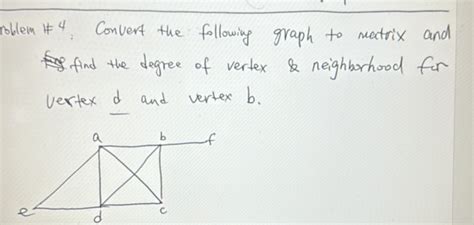 roblem # 4: Convert the following graph to matrix and
find the degree of vertex & neighborhood for
vertex d and vertex b.
a b f
e d c